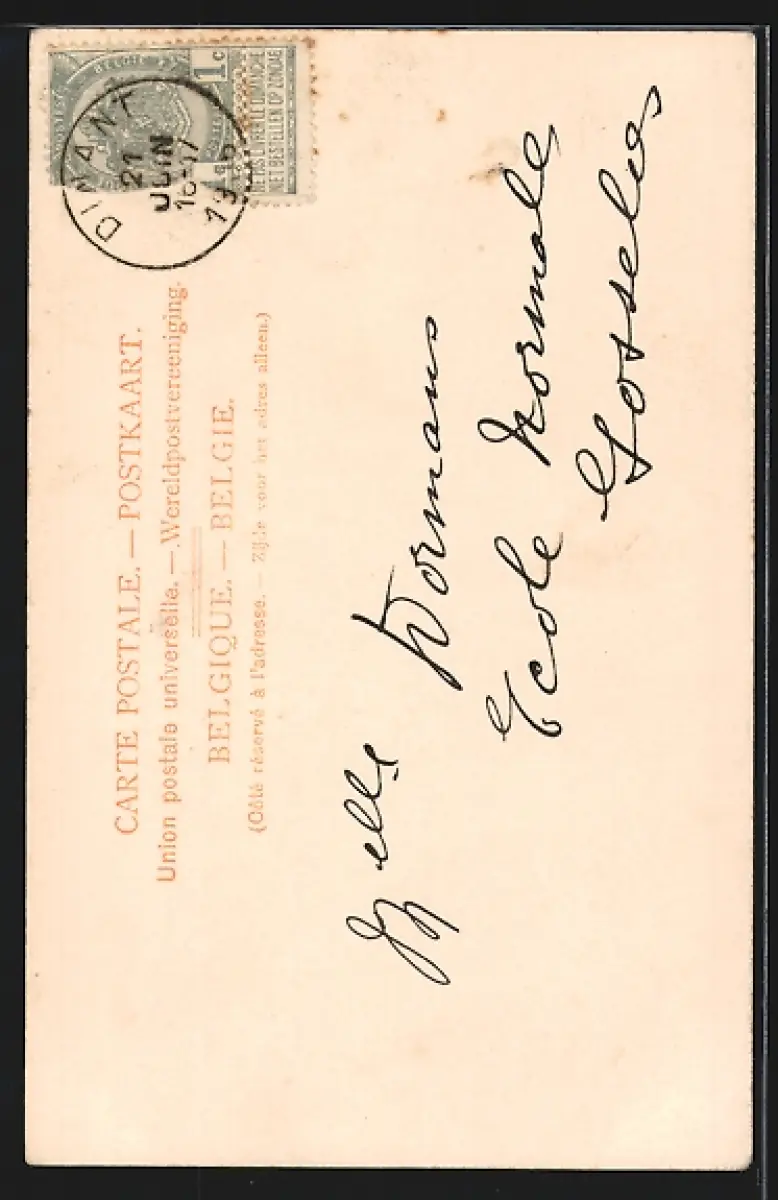 BELGIE
1c
DINANT
21
JUIN
16-17
NE PAS LIVRER LE DIMANCHE
NIET BESTELLEN OP ZONDAG
CARTE POSTALE. — POSTKAART.
Union postale universelle. — Wereldpostvereeniging.
BELGIQUE. — BELGIE.
(Côté réservé à l'adresse. — Zijde voor het adres alleen.)
Melle Dormans
Ecole Normale
Gosselies